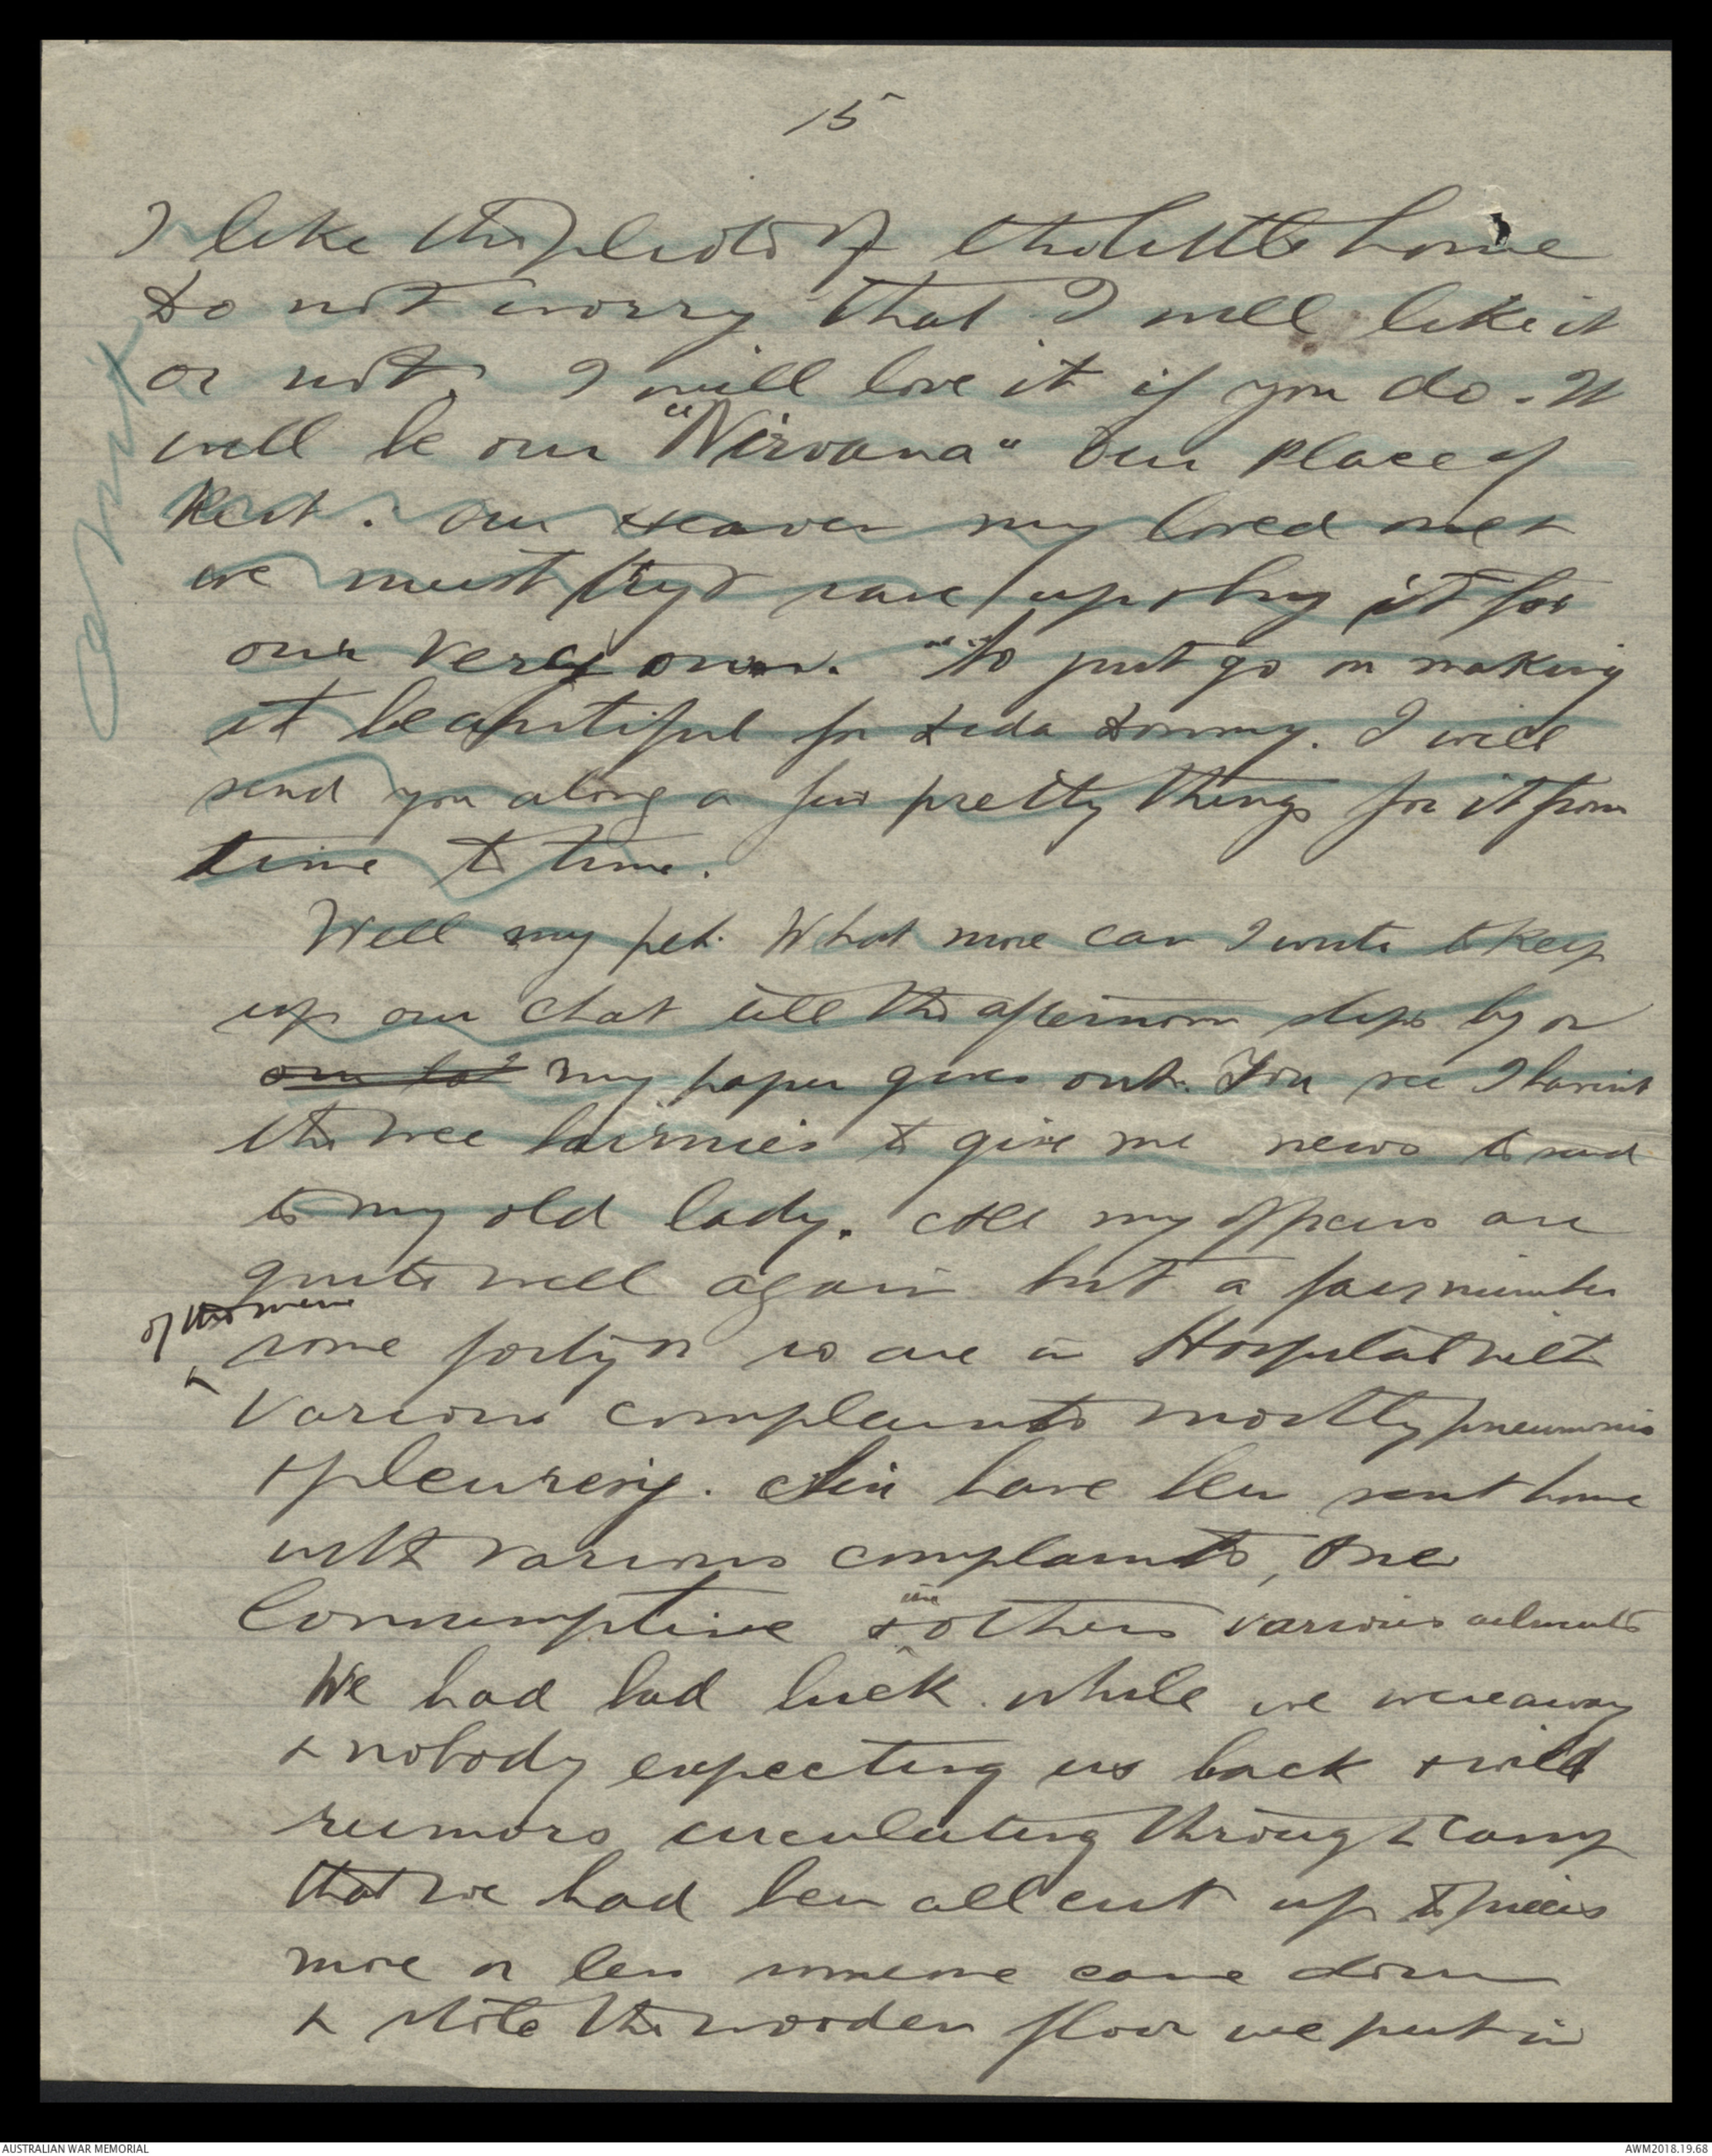 15
I like the photo of the little home
Do not worry that I will like it
or not. I will love it if you do. It
will be our "Nirvana" Our place of
Rest. Our Heaven my loved one &
we must try & save up & buy it for
our very own. So just go on making
it beautiful for Dida & Tommy. I will
send you along a few pretty things for it from
time to time.
Well my pet. What more can I write to keep
up our chat till the afternoon slips by or
my paper gives out. You see I havint
the wee bairnies to give me news to send
to my old lady. All my officers are
quite well again but a fair number
of the men
some forty or so are in Hospital with
various complaints mostly pneumonia
& pleurisy. Six have been sent home
with various complaints, One
Consumptive & others various ailments
We had bad luck while we were away
& nobody expecting us back & wild
rumors circulating through Camp
that we had been all cut up to pieces
more or less someone came down
& stole the wooden floor we put in
omit
AUSTRALIAN WAR MEMORIAL
AWM2018.19.68